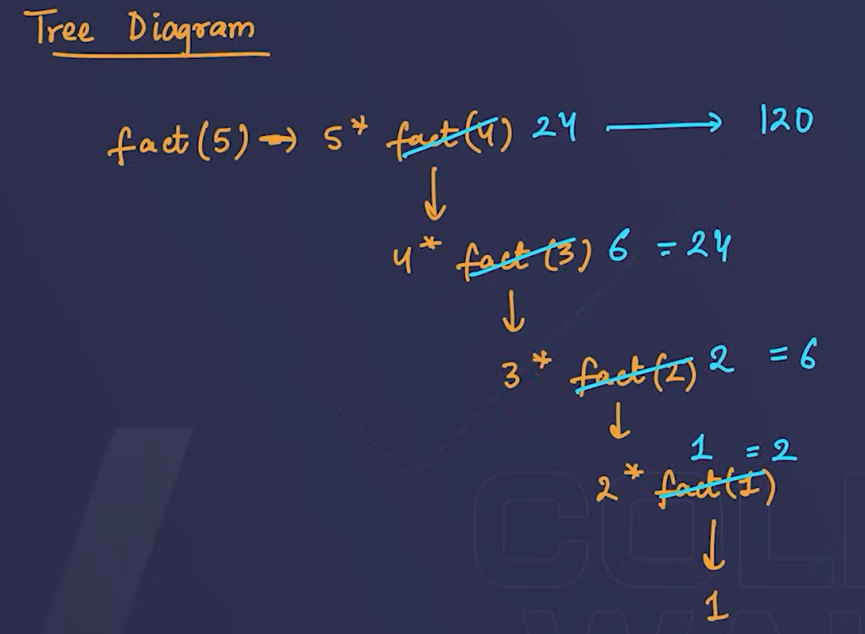 Tree Diagram
fact(5) → 5* fact(4) 24 → 120
↓
4* fact(3) 6 = 24
↓
3* fact(2) 2 = 6
↓
1 = 2
2* fact(1)
↓
1